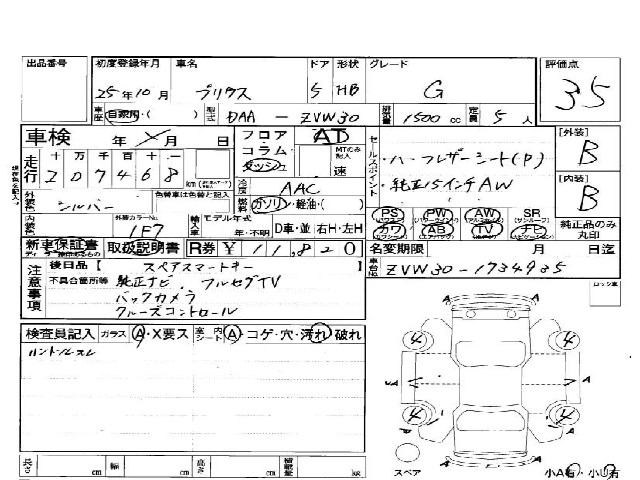 出品番号 初度登録年月 車名 ドア 形状 グレード 評価点
25年10月 プリウス 5 HB G 3.5
車歴 自家用・( ) 型式 DAA - ZVW30 排気量 1500 cc 定員 5 人
車検 年 月 日 フロア AT セールスポイント [外装]
走行 十 万 千 百 十 一 コラム MTのみ記入 ・ハーフレザーシート(P) B
207468 km ダッシュ 速 ・純正15インチAW [内装]
外装色 シルバー 色替車は色替と記入 冷房 AAC B
燃料 ガソリン・軽油・( ) PS PW AW SR
内装色 外装カラーNo. 1F7 輸入車 モデル年式 年・不明 D車・並 右H・左H カワ AB TV ナビ 純正品のみ丸印
新車保証書 取扱説明書 R券 ¥11,820 名変期限 月 日迄
注意事項 後日品【 スペアスマートキー 】 車台No. ZVW30-1734935
不具合箇所等 純正ナビ・フルセグTV
バックカメラ
クルーズコントロール
検査員記入 ガラス A・X要ス 室内シート A・コゲ・穴・汚れ・破れ
ハンドルスレ
4 4
A A
4 4
A A
長さ cm 幅 cm 高さ cm 積載量 kg スペア 小A有・小U有